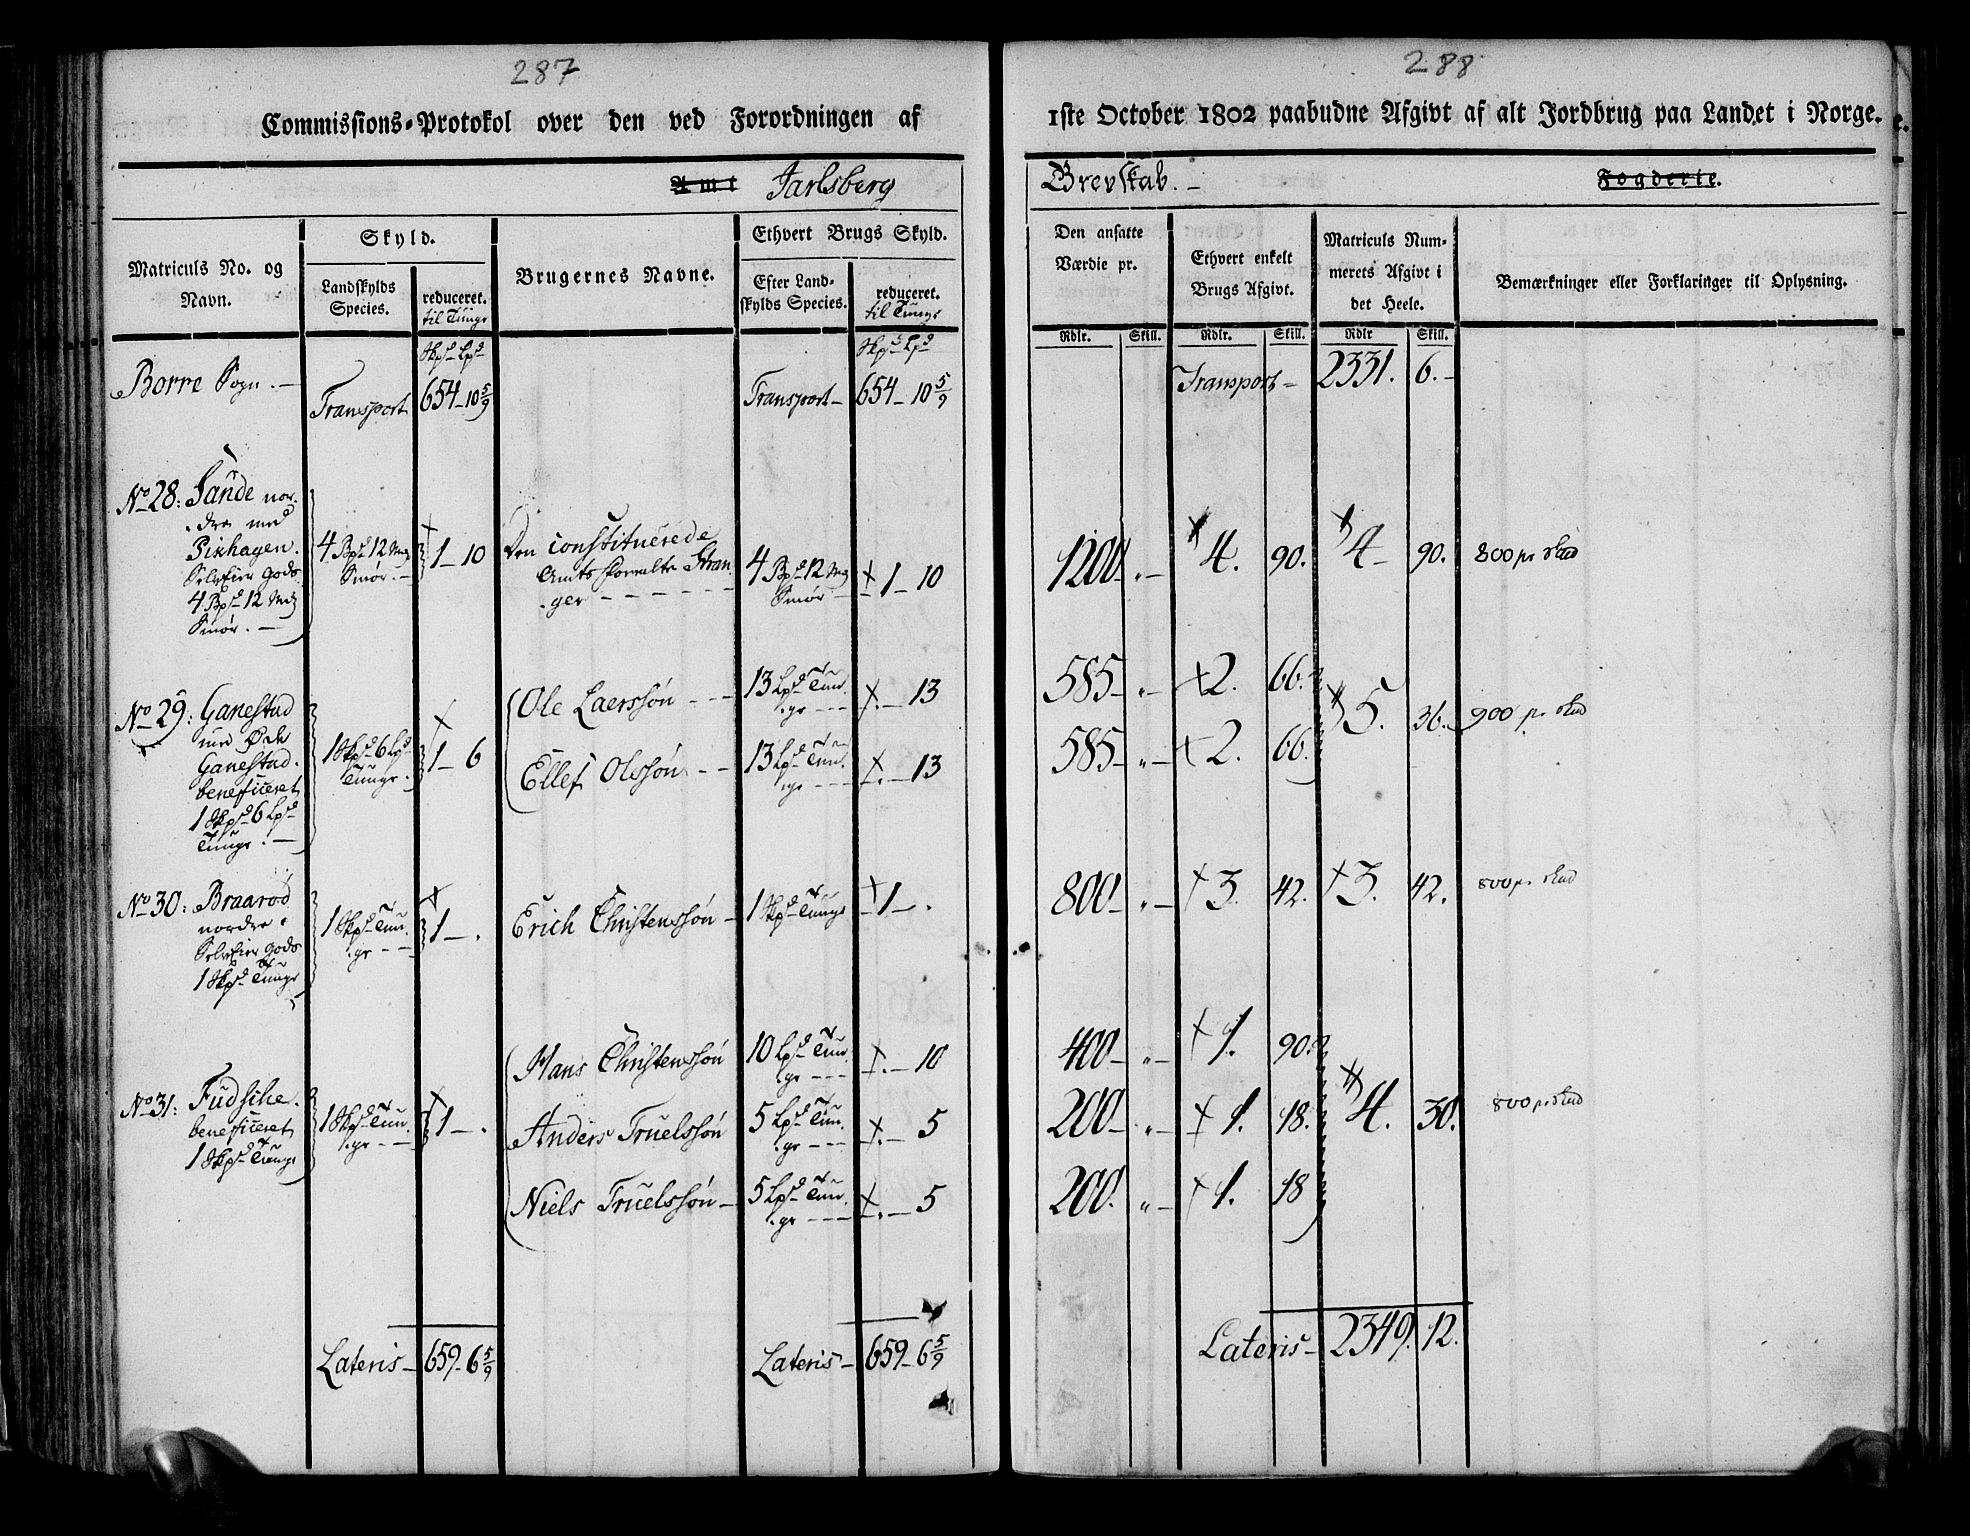 287
Commissions-Protokol over den ved Forordningen af
Amt Jarlsberg
Matriculs No. og
Navn.
Skyld.
Landskylds
Species.
reduceret.
til Tunge
Brugernes Navne.
Ethvert Brugs Skyld.
Efter Land-
skylds Species.
reduceret.
til Tunge
Skpd Lpd
Skpd Lpd
Borre Sogn. —
Transport
654 — 10 5/9
Transport —
654 — 10 5/9
No 28: Sande nor-
dre med
Pixhagen.
Selveier Gods
4 Bpd 12 Mk
Smør. —
4 Bpd 12 Mk
Smør. —
1 — 10
Den constituerede
Amtsforvalter Stran
ger — — —
4 Bpd 12 Mk
Smør —
1 — 10
No 29: Ganestad
med Øde
Ganestad.
beneficeret
1 Skpd 6 Lpd
Tunge. —
1 Skpd 6 Lpd
Tunge.
1 — 6
Ole Laerssøn - - -
13 Lpd Tun-
ge - - -
. — 13
Ellef Olssøn - -
13 Lpd Tun-
ge - - -
. — 13
No 30: Braarød
nordre.
Selveier Gods
1 Skpd Tunge
1 Skpd Tun-
ge - -
1 — .
Erich Christenssøn —
1 Skpd Tunge
1 — .
No 31: Fudsihe.
beneficeret
1 Skpd Tunge
1 Skpd Tun-
ge - -
1 — .
Hans Christenssøn
10 Lpd Tun-
ge - - -
. — 10
Anders Truelssøn
5 Lpd Tun-
ge - - -
. — 5
Niels Truelssøn —
5 Lpd Tun-
ge - - -
. — 5
Lateris —
659 — 6 5/9
Lateris —
659 — 6 5/9
288
1ste October 1802 paabudne Afgivt af alt Jordbrug paa Landet i Norge.
Grevskab. —
Fogderie.
Den ansatte
Værdie pr.
Ethvert enkelt
Brugs Afgivt.
Matriculs Num-
merets Afgivt i
det Heele.
Bemærkninger eller Forklaringer til Oplysning.
Rdlr. Skill. Rdlr. Skill. Rdlr Skill.
Transport — 2331. 6. —
1200 „ — 4. 90. 4 — 90. 800 pr Skd
585 — „ — 2. 66.
5. 36. 900 pr Skd
585 — „ — 2. 66.
800 — „ — 3. 42. 3. 42. 800 pr Skd
400 — „ — 1. 90.
200 — „ — 1. 18. 4. 30. 800 pr Skd
200. „ — 1. 18
Lateris — 2349. 12.